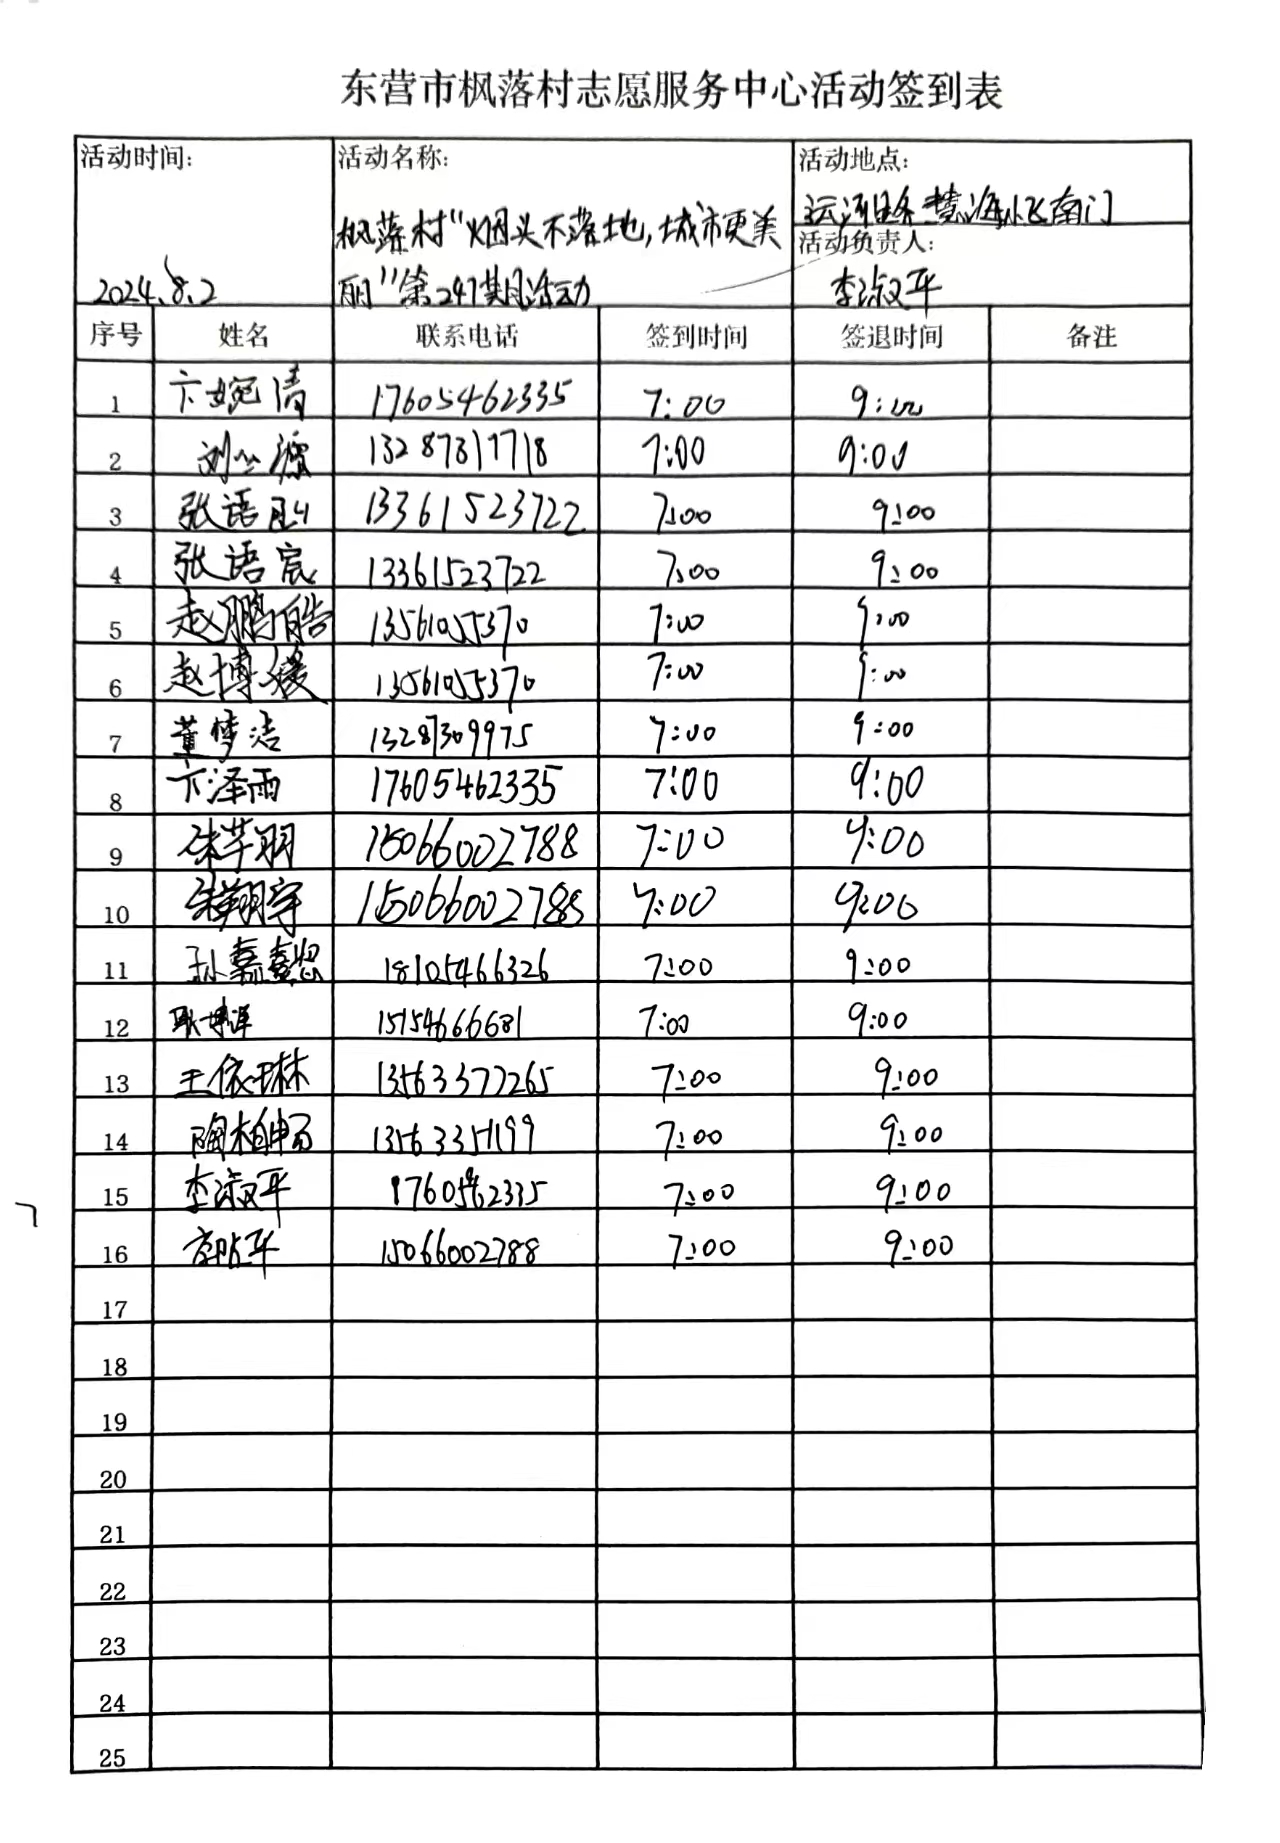 东营市枫落村志愿服务中心活动签到表
活动时间: 活动名称: 活动地点:
运河路慧海小区南门
枫落村“烟头不落地,城市更美
活动负责人:
2024.8.2 丽”第247期活动 李淑平
序号 姓名 联系电话 签到时间 签退时间 备注
1 卞婉清 17605462335 7:00 9:00
2 刘 源 13287317718 7:00 9:00
3 张语 13361523722 7:00 9:00
4 张语宸 13361523722 7:00 9:00
5 赵鹏皓 13561055370 7:00 9:00
6 赵博 13561055370 7:00 9:00
7 董梦洁 13287309975 7:00 9:00
8 卞泽雨 17605462335 7:00 9:00
9 朱芊羽 15066002788 7:00 9:00
10 朱翔宇 15066002788 7:00 9:00
11 孙嘉 18105466326 7:00 9:00
12 耿博洋 15154666681 7:00 9:00
13 王依琳 13563377265 7:00 9:00
14 陶柏畅 13563357199 7:00 9:00
15 李淑平 7:00 9:00
16 平 15066002788 7:00 9:00
17
18
19
20
21
22
23
24
25